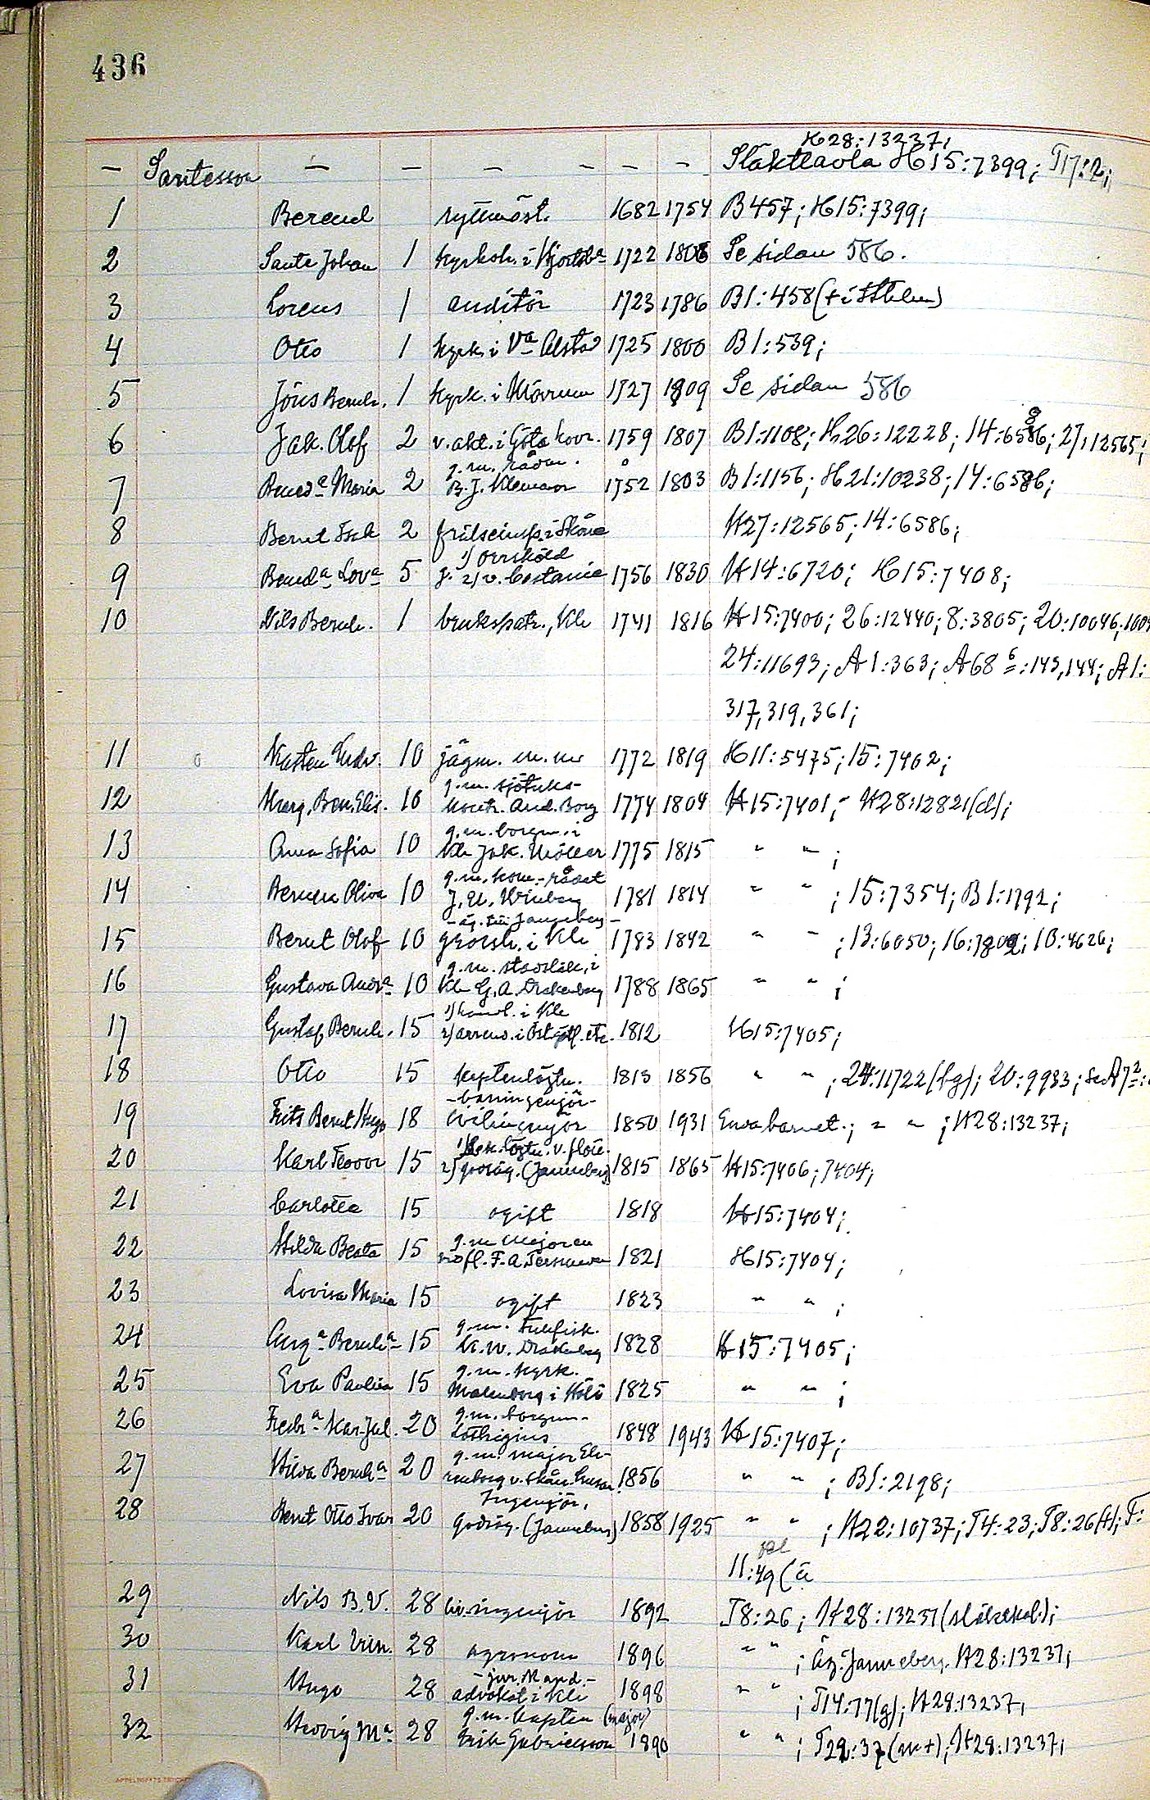 436
H28:13237;
— Santesson — — — — — Släkttavla H15:7399; T17:2;
1 Berend ryttmäst. 1682 1754 B457; H15:7399;
2 Sante Johan 1 kyrkoh. i 1722 1806 Se sidan 586.
3 Lorens 1 auditör 1723 1786 B1:458
4 Otto 1 kyrk. i Va Alstad 1725 1800 B1:539;
5 Jöns Bernh. 1 kyrk. i Mörrum 1727 1809 Se sidan 586
6 Jak. Olof 2 v. akt. i Göta hovr. 1759 1807 B1:1108; H26:12228; 14:6586; 27:12565;
g.m. rådm.
7 Maria 2 B. J. 1752 1803 B1:1156; H21:10238; 14:6586;
8 Bernt Isak 2 frälseinsp. i Skåne H27:12565; 14:6586;
1)
9 Bened.a Lov.a 5 g. 2) v. 1756 1830 H14:6720; H15:7408;
10 Nils Bernh. 1 brukspatr., Kli 1741 1816 H15:7400; 26:12440; 8:3805; 20:10046,
24:11693; A1:363; A68 6:143,144; A1:
317,319,361;
11 Kasten Undv. 10 jägm. m.m 1772 1819 H11:5475; 15:7402;
g.m. sjötulls-
12 Marg. Ben. Elis. 10 kontr. And. Borg 1774 1804 H15:7401; H28:12821(d);
g.m. borgm. i
13 Anna Sofia 10 Kli Jak. Möller 1775 1815 " " ;
g.m. kom.-rådet
14 Oliva 10 J. N. Winberg 1781 1814 " " ; 15:7354; B1:1792;
- äg. till Janneberg -
15 Bernt Olof 10 grossh. i Kli 1783 1842 " " ; 13:6050; 16:7802; 10:4626;
g.m. stadsläk. i
16 Gustava Andr.a 10 Kli G. A. Drakenberg 1788 1865 " " ;
1) handl. i Kli
17 Gustaf Bernh. 15 2) arrend. i Östgötl. etc. 1812 H15:7405;
18 Otto 15 kaptenlöjtn. 1813 1856 " " ; 24:11722(bg); 20:9983;
19 Frits Bernt Hugo 18 civilingenjör 1850 1931 Enda barnet; " " ; H28:13237;
1) v. flott.
20 Karl Teodor 15 2) godsäg. (Janneberg) 1815 1865 H15:7406; 7404;
21 Carlotta 15 ogift 1818 H15:7404;
g.m majoren
22 Hilda Beata 15 F. A. 1821 H15:7404;
23 Lovisa Maria 15 ogift 1823 " " ;
g.m. tullfisk.
24 Aug.a Bernh.a 15 K. W. Drakenberg 1828 H15:7405;
g.m. kyrk.
25 Eva Paulina 15 i 1825 " " ;
g.m. borgm.
26 Fredr.a Kar. Jul. 20 Lothigius 1848 1943 H15:7407;
g.m. major Eh-
27 Hilda Bernh.a 20 renborg v. Skån. husar. 1856 " " ; B1:2198;
Ingenjör,
28 Bernt Otto Ivar 20 godsäg. (Janneberg) 1858 1925 " " ; H22:10737; T4:23; T8:26(t); T:
11:49
29 Nils B. V. 28 civ. ingenjör 1892 T8:26; H28:13237(släkttavl.);
30 Karl 28 agronom 1896 " " ; Äg. Janneberg. H28:13237;
- jur. kand. -
31 Hugo 28 advokat i Kli 1898 " " ; T14:77(g); H28:13237;
g.m. kapten (major)
32 Hedvig M.a 28 Erik Gabrielsson 1890 " " ; T22:37(m+); H28:13237;